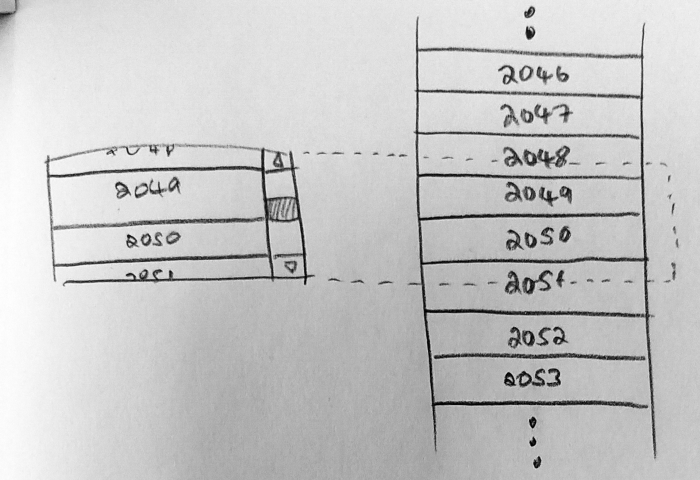 2049
2050
2051
2046
2047
2048
2049
2050
2051
2052
2053